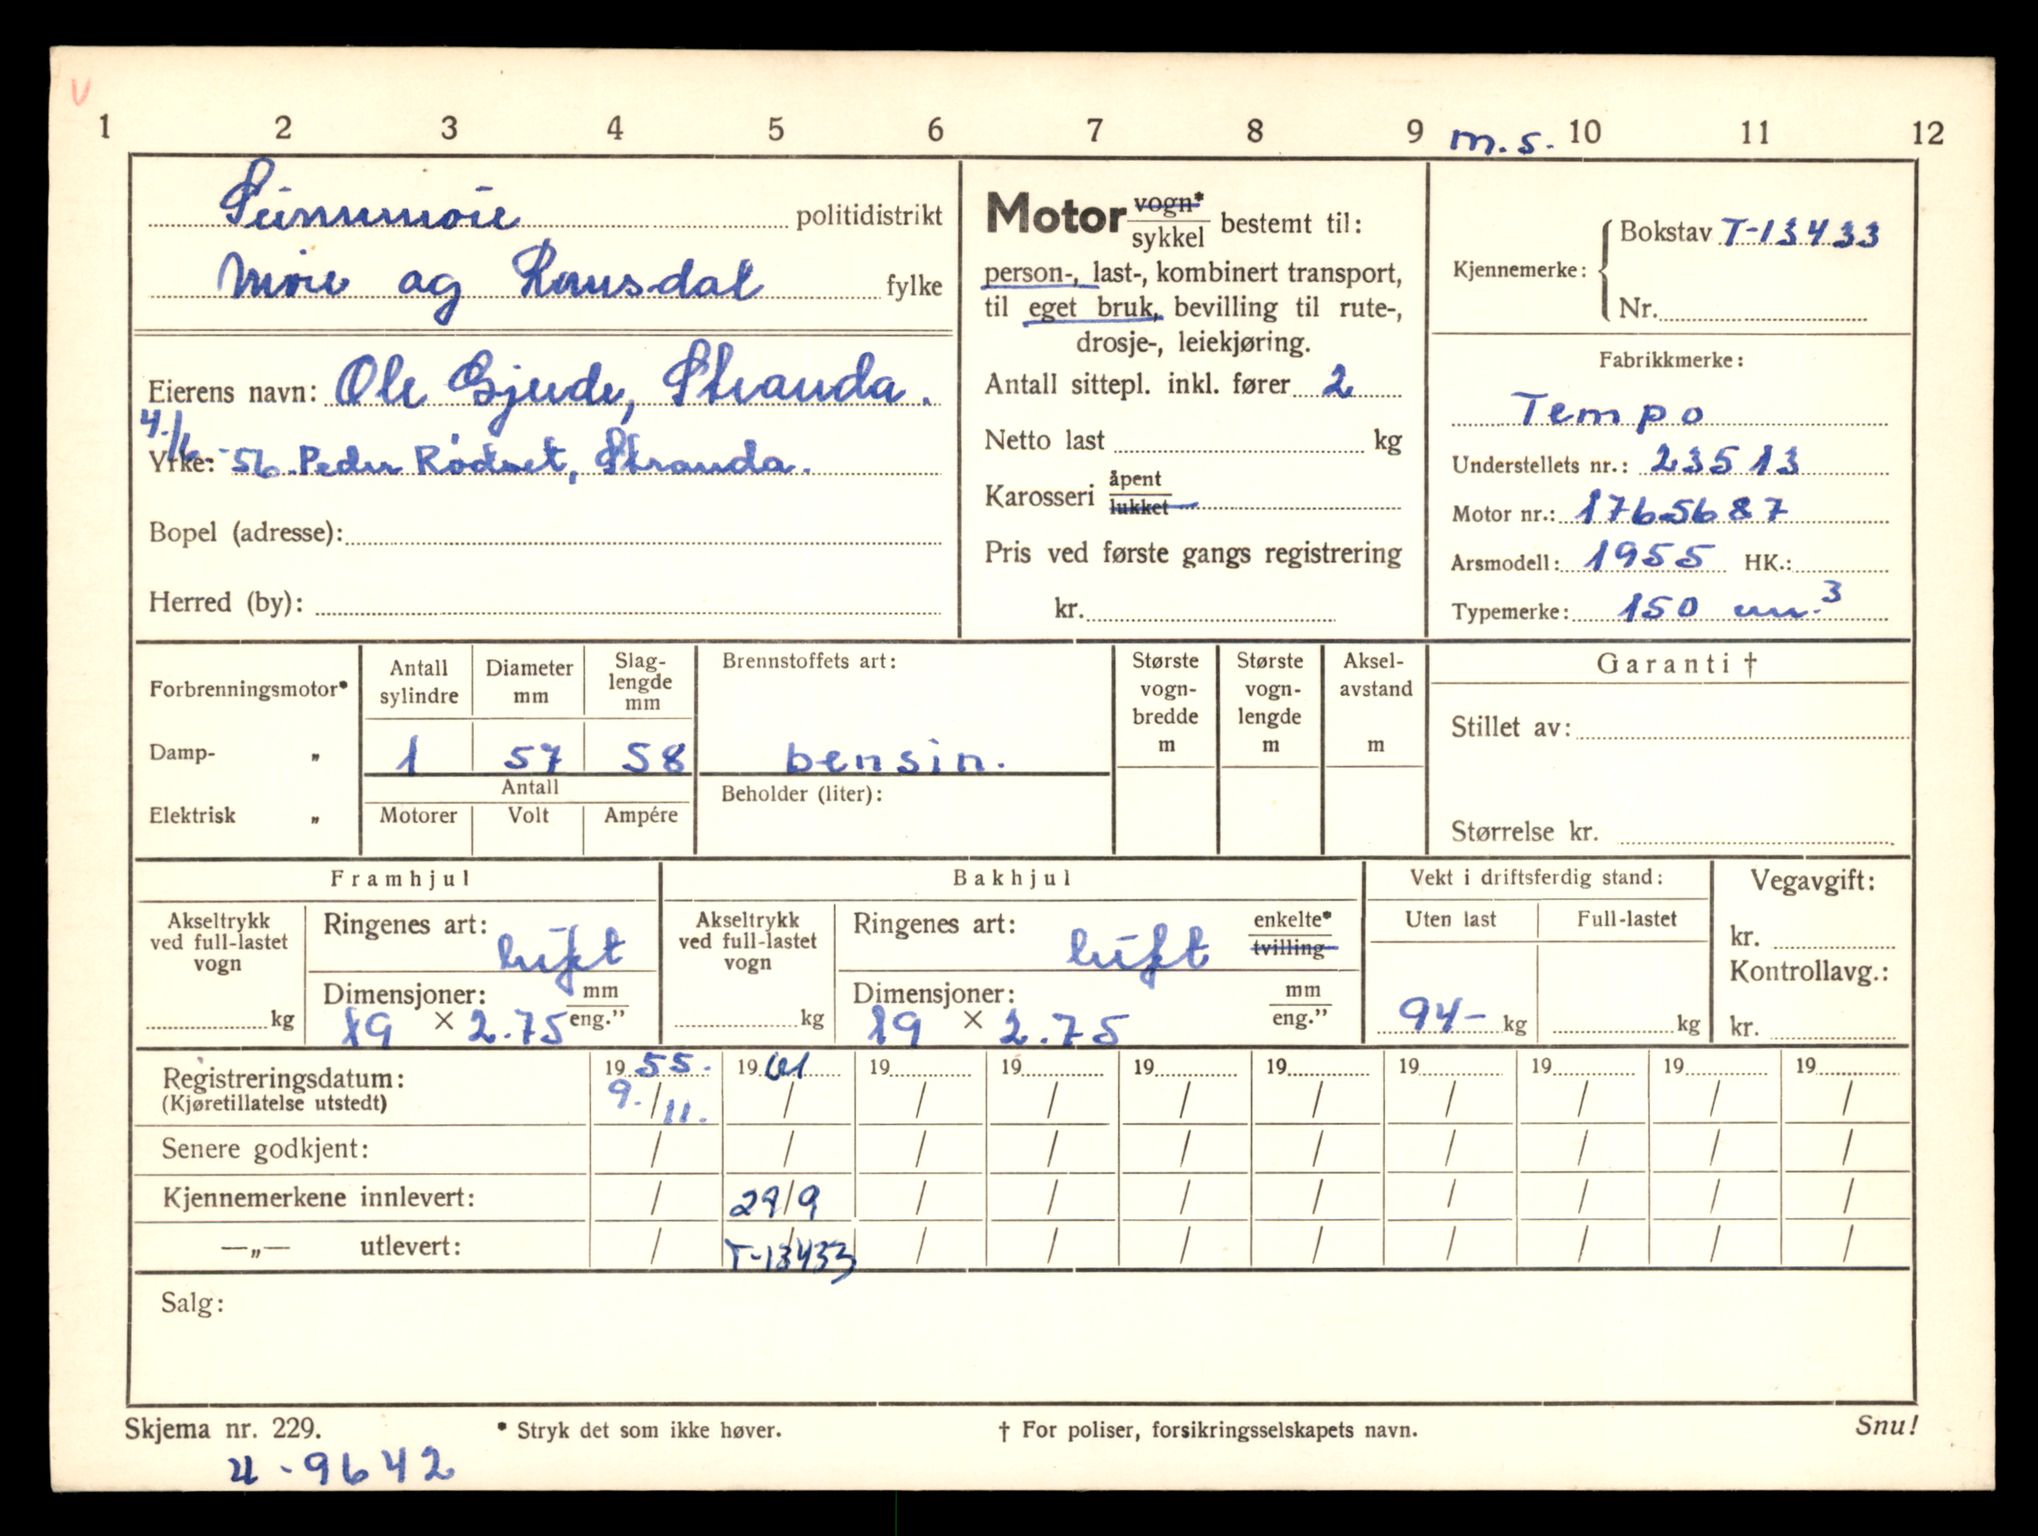 V
1 2 3 4 5 6 7 8 9 m.s. 10 11 12
Sunnmøre politidistrikt
Møre og Romsdal fylke
Eierens navn: Ole Gjerde, Stranda.
4./6-56 Peder Rødset, Stranda.
Yrke:
Bopel (adresse):
Herred (by):
Motor vogn* / sykkel bestemt til:
person-, last-, kombinert transport,
til eget bruk, bevilling til rute-,
drosje-, leiekjøring.
Antall sittepl. inkl. fører 2
Netto last kg
Karosseri åpent / lukket
Pris ved første gangs registrering
kr.
Kjennemerke: Bokstav T-13433
Nr.
Fabrikkmerke:
Tempo
Understellets nr.: 23513
Motor nr.: 1765687
Arsmodell: 1955 HK.:
Typemerke: 150 cm.3
Forbrenningsmotor*
Damp- „
Elektrisk „
Antall sylindre 1
Diameter mm 57
Slag-lengde mm 58
Antall
Motorer Volt Ampére
Brennstoffets art:
bensin.
Beholder (liter):
Største vogn-bredde m
Største vogn-lengde m
Aksel-avstand m
Garanti †
Stillet av:
Størrelse kr.
Framhjul
Akseltrykk ved full-lastet vogn kg
Ringenes art: luft
Dimensjoner: mm / eng.”
19 × 2.75
Bakhjul
Akseltrykk ved full-lastet vogn kg
Ringenes art: luft enkelte* / tvilling
Dimensjoner: mm / eng.”
19 × 2.75
Vekt i driftsferdig stand:
Uten last Full-lastet
94- kg kg
Vegavgift:
kr.
Kontrollavg.:
kr.
Registreringsdatum: 19 55. 19 61 19 19 19 19 19 19 19 19
(Kjøretillatelse utstedt) 9./11. / / / / / / / / /
Senere godkjent: / / / / / / / / / /
Kjennemerkene innlevert: / 29/9 / / / / / / / /
—„— utlevert: / T-13433 / / / / / / / /
Salg:
Skjema nr. 229. * Stryk det som ikke høver. † For poliser, forsikringsselskapets navn. Snu!
U-9642